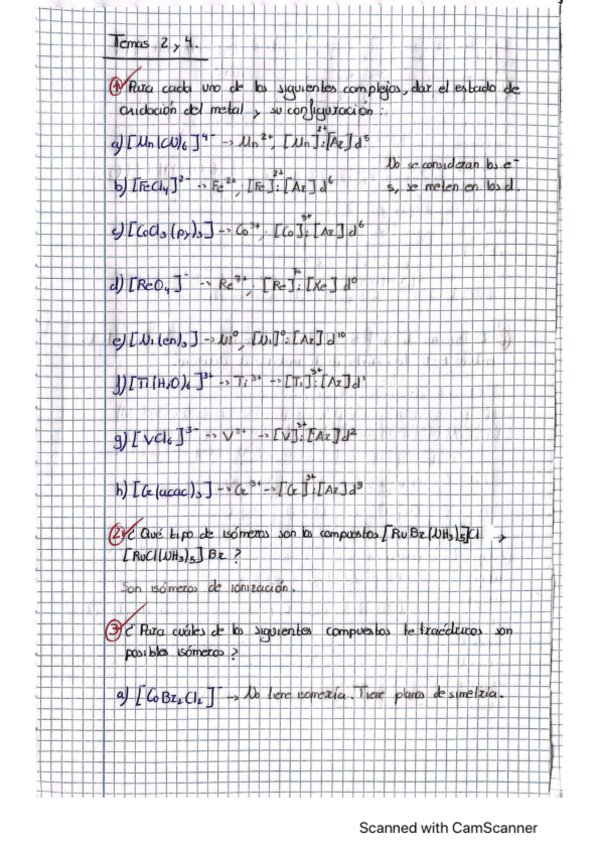 Temas 2 y 4.
① Para cada uno de los siguientes complejos, dar el estado de
oxidación del metal y su configuración:
a) [Mn(CN)6]4- → Mn2+, [Mn]2+: [Ar] d5
No se consideran los e-
b) [FeCl4]2- → Fe2+, [Fe]2+: [Ar] d6
s, se meten en los d.
c) [CoCl3(py)3] → Co3+, [Co]3+: [Ar] d6
d) [ReO4]- → Re7+, [Re]7+: [Xe] d0
e) [Ni(en)3] → Ni0, [Ni]0: [Ar] d10
f) [Ti(H2O)6]3+ → Ti3+ → [Ti]3+: [Ar] d1
g) [VCl6]3- → V3+ → [V]3+: [Ar] d2
h) [Cr(acac)3] → Cr3+ → [Cr]3+: [Ar] d3
② ¿Qué tipo de isómeros son los compuestos [RuBr(NH3)5]Cl y
[RuCl(NH3)5]Br?
Son isómeros de ionización.
③ ¿Para cuáles de los siguientes compuestos tetraédricos son
posibles isómeros?
a) [CoBr2Cl2]- → No tiene isomería. Tiene planos de simetría.
Scanned with CamScanner